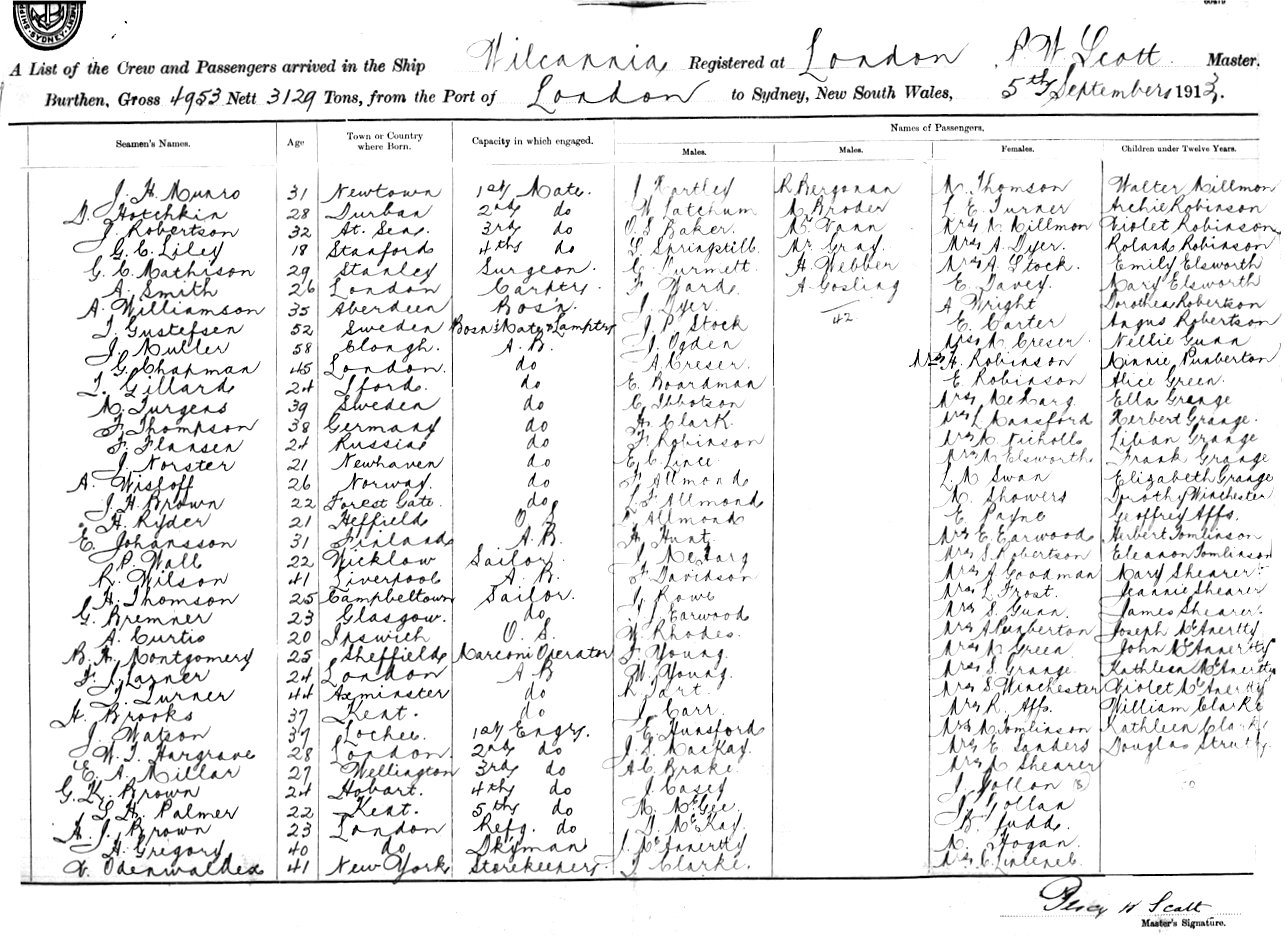 A List of the Crew and Passengers arrived in the Ship Wilcannia Registered at London P. W. Scott Master.
Burthen, Gross 4953 Nett 3129 Tons, from the Port of London to Sydney, New South Wales, 5th September 1913.
Names of Passengers.
Seamen's Names. Age Town or Country where Born. Capacity in which engaged. Males. Males. Females. Children under Twelve Years.
J. H. Munro 31 Newtown 1st Mate. J Hartley R Bergonan M. Thomson Walter Millmon
D. Hotchkin 28 Durban 2nd do W Latchum M Broder L E. Turner Archie Robinson
J. Robertson 32 At Sea. 3rd do O. S Baker. M Vann Mrs M Millmon Violet Robinson
G. C. Liley 18 Stanford 4th do L Springstill Mr Gray. Mrs A Dyer. Roland Robinson
G. C. Mathison 29 Stanley Surgeon. G. Burmett. H Webber Mrs A Stock. Emily Elsworth
A. Smith 26 London Carptr. F Ward. A Gosling E Davey. Mary Elsworth
A. Williamson 35 Aberdeen Bos'n. J. Dyer. A Wright Dorothea Robertson
T. Gustefsen 52 Sweden Bosn's Mate & Lamptr J. P Stock 42 E. Carter Angus Robertson
J. Muller 58 Clough. A.B. J. Ogden Mrs M Creser. Nellie Gunn
G. Chapman 45 London. do A Creser. Mrs H. Robinson Minnie Punberton
T. Gillard 24 Ilford. do E. Boardman E Robinson Alice Green.
M. Jurgens 39 Sweden do C Ibbotson Mrs McHarg Ella Grange
F. Thompson 38 Germany do H. Clark. Mrs L Hansford Herbert Grange.
F. Flansen 24 Russia do F. Robinson Mrs M Nicholls Lilian Grange
J. Norster 21 Newhaven do E. C. Lince Mrs M Elsworth Frank Grange
A. Wishoff 26 Norway. do F Allmond L. M Swan Elizabeth Grange
J. H. Brown 22 Forest Gate. do L F Allmond M. Showers Dorothy Winchester
H. Ryder 21 Heffield O.S. Allmond E Payne Geoffrey Affs.
E. Johansson 31 Finland A.B. H Hunt. Mrs E Earwood Hubert Tomlinson
P. Wall 22 Wicklow Sailor. J. McHarg Mrs S. Robertson Eleanor Tomlinson
R. Wilson 41 Liverpool A.B. F Davidson Mrs J Goodman Mary Shearer.
H. Thomson 25 Campbeltown Sailor. J Rowe Mrs L Frost. Jeannie Shearer
G. Bremner 23 Glasgow. do J. Earwood Mrs S. Gunn James Shearer.
A. Curtis 20 Ipswich O.S. W Rhodes. Mrs A Punberton Joseph McAnertty
B. A. Montgomery 25 Sheffield Marconi Operator F Young. Mrs M Green John McAnertty
F. J. Larner 24 London A B W. Young. Mrs S Grange Kathleen McAnertty
J. Turner 44 Axminster do R Tart. Mrs S Winchester Violet McAnertty
H. Brooks 37 Kent. do J. Carr. Mrs R. Affs. William Clarke
J. Watson 37 Lochee. 1st Engr. E Hunsford Mrs M Tomlinson Kathleen Clarke
W. J. Hargrave 28 London 2nd do J. S. MacKay. Mrs E Sanders Douglas
E. A. Millar 27 Wellington 3rd do A C Brake Mrs M Shearer
G. K. Brown 24 Hobart. 4th do J. Casey J. Gollan
S. H. Palmer 22 Kent. 5th do M. McGee. J Gollan
A. J. Brown 23 London Refg. do D. McKay B. Judd.
H. Gregory 40 do Dkyman J. McAnertty M. Hogan
V. Odenwalder 41 New York Storekeeper. T Clarke. Mrs C
Percy W Scott
Master's Signature.